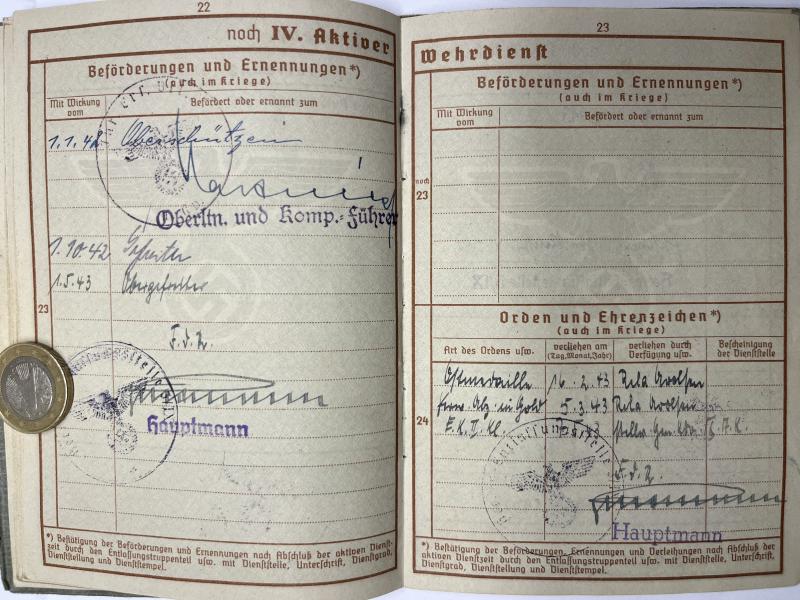 22
noch IV. Aktiver
Beförderungen und Ernennungen*)
(auch im Kriege)
Mit Wirkung vom
Befördert oder ernannt zum
1.1.42 Oberschützen
Oberltn. und Komp.-Führer
1.10.42 Gefreiter
1.5.43 Obergefreiter
23
F.d.R.
Entlassungsstelle
Hauptmann
*) Bestätigung der Beförderungen und Ernennungen nach Abschluß der aktiven Dienst-
zeit durch den Entlassungstruppenteil usw. mit Dienststelle, Unterschrift, Dienstgrad,
Dienststellung und Dienststempel.
23
Wehrdienst
Beförderungen und Ernennungen*)
(auch im Kriege)
Mit Wirkung vom
Befördert oder ernannt zum
noch
23
Orden und Ehrenzeichen*)
(auch im Kriege)
Art des Ordens usw.
verliehen am
(Tag, Monat, Jahr)
verliehen durch
Verfügung usw.
Bescheinigung
der Dienststelle
Ostmedaille 16.2.43 Arolsen
Abz. in Gold 5.3.43 Arolsen
24
E.K. II. Kl. 43 stellv. Gen. Kdo. A.K.
Entlassungsstelle
F.d.R.
Hauptmann
*) Bestätigung der Beförderungen, Ernennungen und Verleihungen nach Abschluß der
aktiven Dienstzeit durch den Entlassungstruppenteil usw. mit Dienststelle, Unterschrift,
Dienstgrad, Dienststellung und Dienststempel.